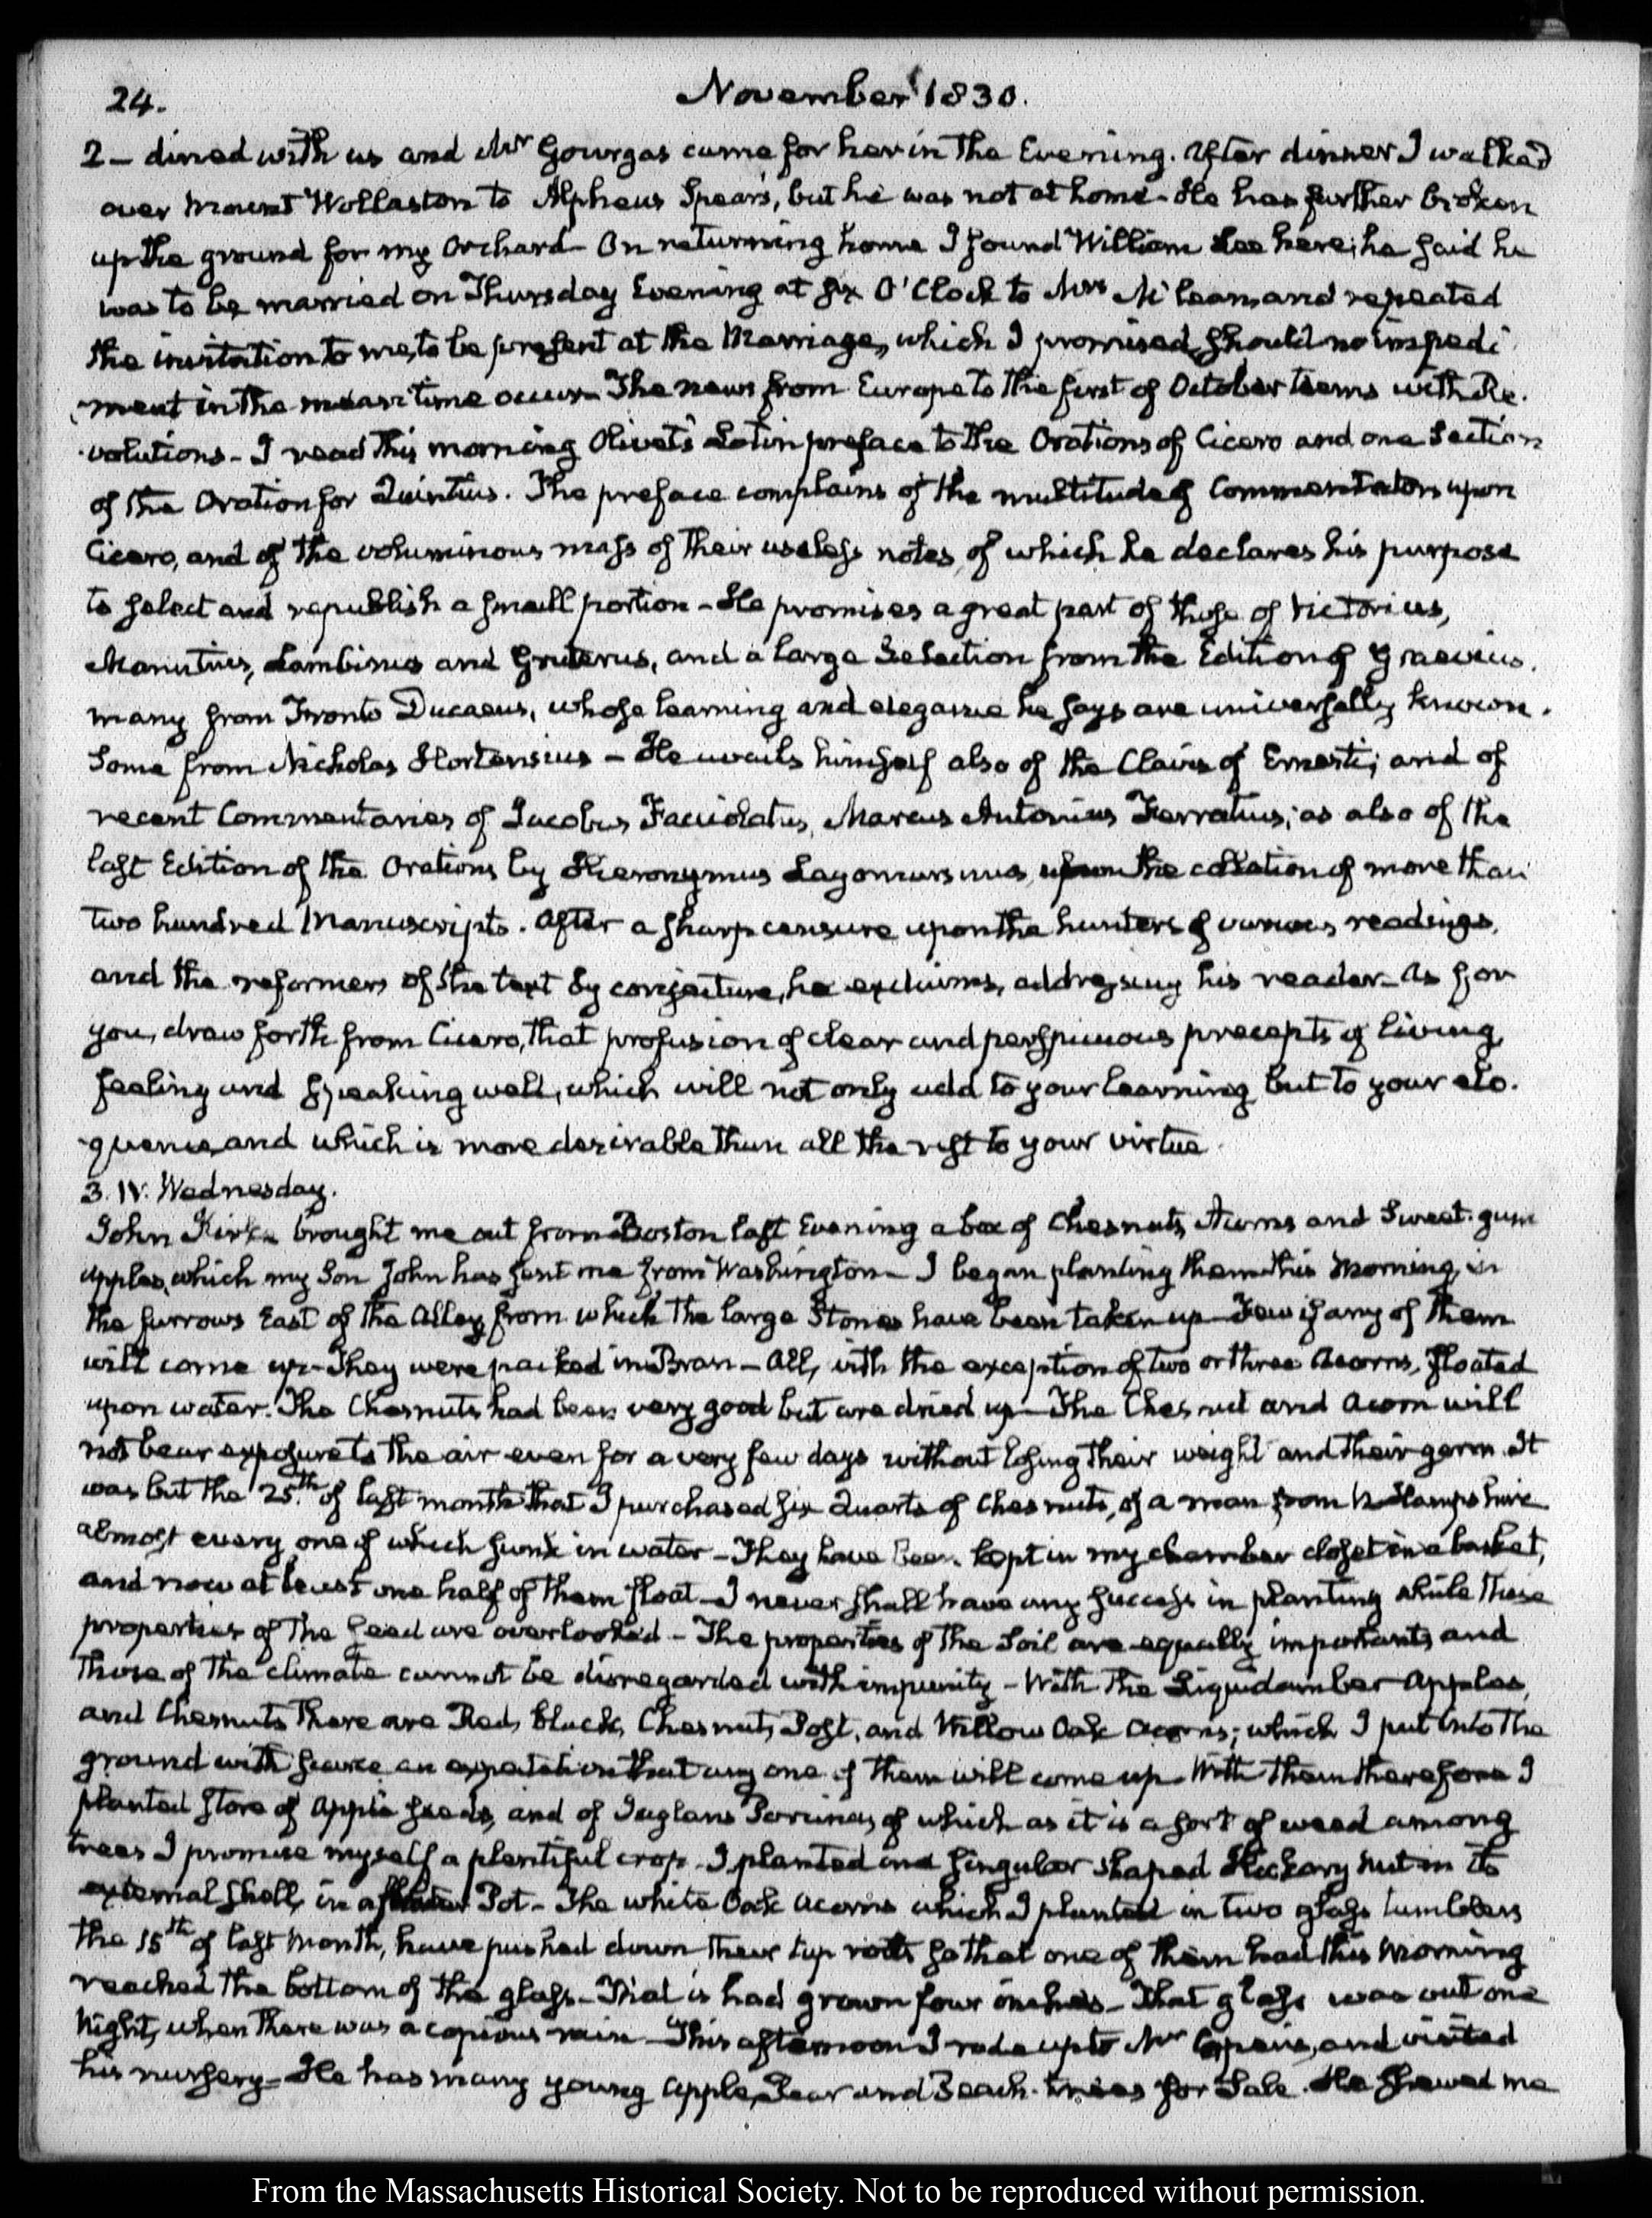 24. November 1830.
2 — dined with us and Mr Gourgas came for her in the Evening. After dinner I walked
over Mount Wollaston to Alpheus Spear's, but he was not at home - He has further broken
up the ground for my Orchard - On returning home I found William Lee here; he said he
was to be married on Thursday Evening at six O'Clock to Mrs McLean, and repeated
the invitation to me, to be present at the Marriage, which I promised, should no impedi
ment in the mean time occur - The news from Europe to the first of October teems with Re-
-volutions - I read this morning Olivet's Latin preface to the Orations of Cicero and one Section
of the Oration for Quintius. The preface complains of the multitude of Commentators upon
Cicero, and of the voluminous mass of their useless notes, of which he declares his purpose
to select and republish a small portion - He promises a great part of those of Victorius,
Manutius, Lambinus and Gruterus, and a large Selection from the Edition of Graevius.
many from Fronto Ducaeus, whose learning and elegance he says are universally known.
Some from Nicholas Hortensius - He avails himself also of the Clavis of Ernesti; and of
recent Commentaries of Jacobus Facciolatus, Marcus Antonius Ferratius; as also of the
last Edition of the Orations by Hieronymus Lagomarsinus, upon the collation of more than
two hundred Manuscripts. After a sharp censure upon the hunters of various readings,
and the reformers of the text by conjecture, he exclaims, addressing his reader - As for
you, draw forth from Cicero, that profusion of clear and perspicuous precepts of living,
feeling and speaking well, which will not only add to your learning but to your elo-
-quence, and which is more desirable than all the rest to your virtue.
3. IV. Wednesday.
John Kirke brought me out from Boston last Evening a box of Chesnuts, Acorns and Sweet-gum
apples, which my Son John has sent me from Washington - I began planting them this Morning, in
the furrows East of the Alley from which the large Stones have been taken up - Few if any of them
will come up - They were packed in Bran - All, with the exception of two or three Acorns, floated
upon water. The Chesnuts had been very good but are dried up - The Chesnut and Acorn will
not bear exposure to the air even for a very few days without losing their weight and their germ. It
was but the 25th of last month that I purchased six Quarts of Chesnuts, of a man from N. Hampshire
almost every one of which sunk in water - They have been kept in my chamber closet in a basket,
and now at least one half of them float - I never shall have any success in planting while these
properties of the Seed are overlooked - The properties of the Soil are equally important, and
those of the climate cannot be disregarded with impunity - With the Liquidamber Apples,
and Chesnuts there are Red, Black, Chesnut, Post, and Willow Oak acorns; which I put into the
ground with scarce an expectation that any one of them will come up. With them therefore I
planted store of Apple seeds, and of Juglans Porcinas, of which as it is a sort of weed among
trees I promise myself a plentiful crop - I planted one singular shaped Hickory nut in its
external shell, in a Pot - The white Oak acorns which I planted in two glass tumblers
the 15th of last Month, have pushed down their tap roots so that one of them had this Morning
reached the bottom of the glass - That is had grown four inches - That glass was out one
Night, when there was a copious rain - This afternoon I rode up to Mr Spear's, and visited
his nursery - He has many young Apple, Pear and Peach-trees for Sale. He shewed me
From the Massachusetts Historical Society. Not to be reproduced without permission.